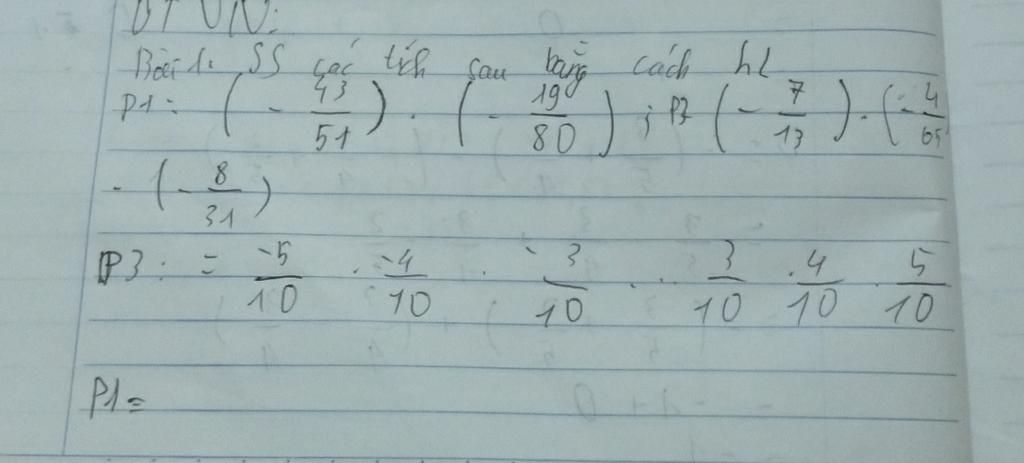 BT VN:
Bài 1: SS các tích sau bằng cách hl
P1 = (- 43/51) . (- 19/80) ; P2 (- 7/13) . (- 4/65
. (- 8/31)
P3 : = -5/10 . -4/10 . -3/10 . . . 3/10 . 4/10 . 5/10
P1 =